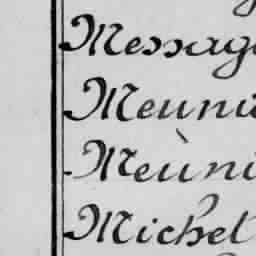 Message
Meuni
Meùni
Michel